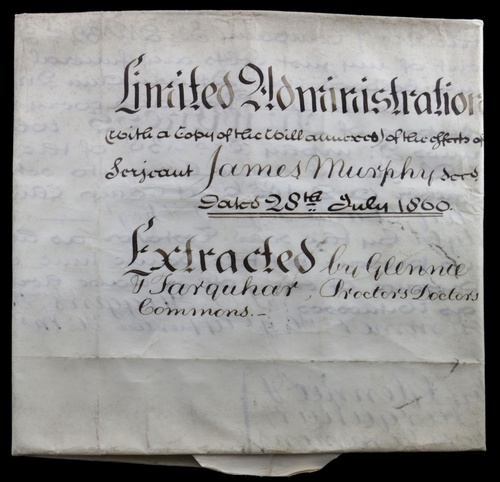 Limited Administration
(with a Copy of the Will annexed) of the effects of
Serjeant James Murphy Decd.
Dated 28th July 1860.
Extracted by Glennie
& Farquhar, Proctors Doctors
Commons.-